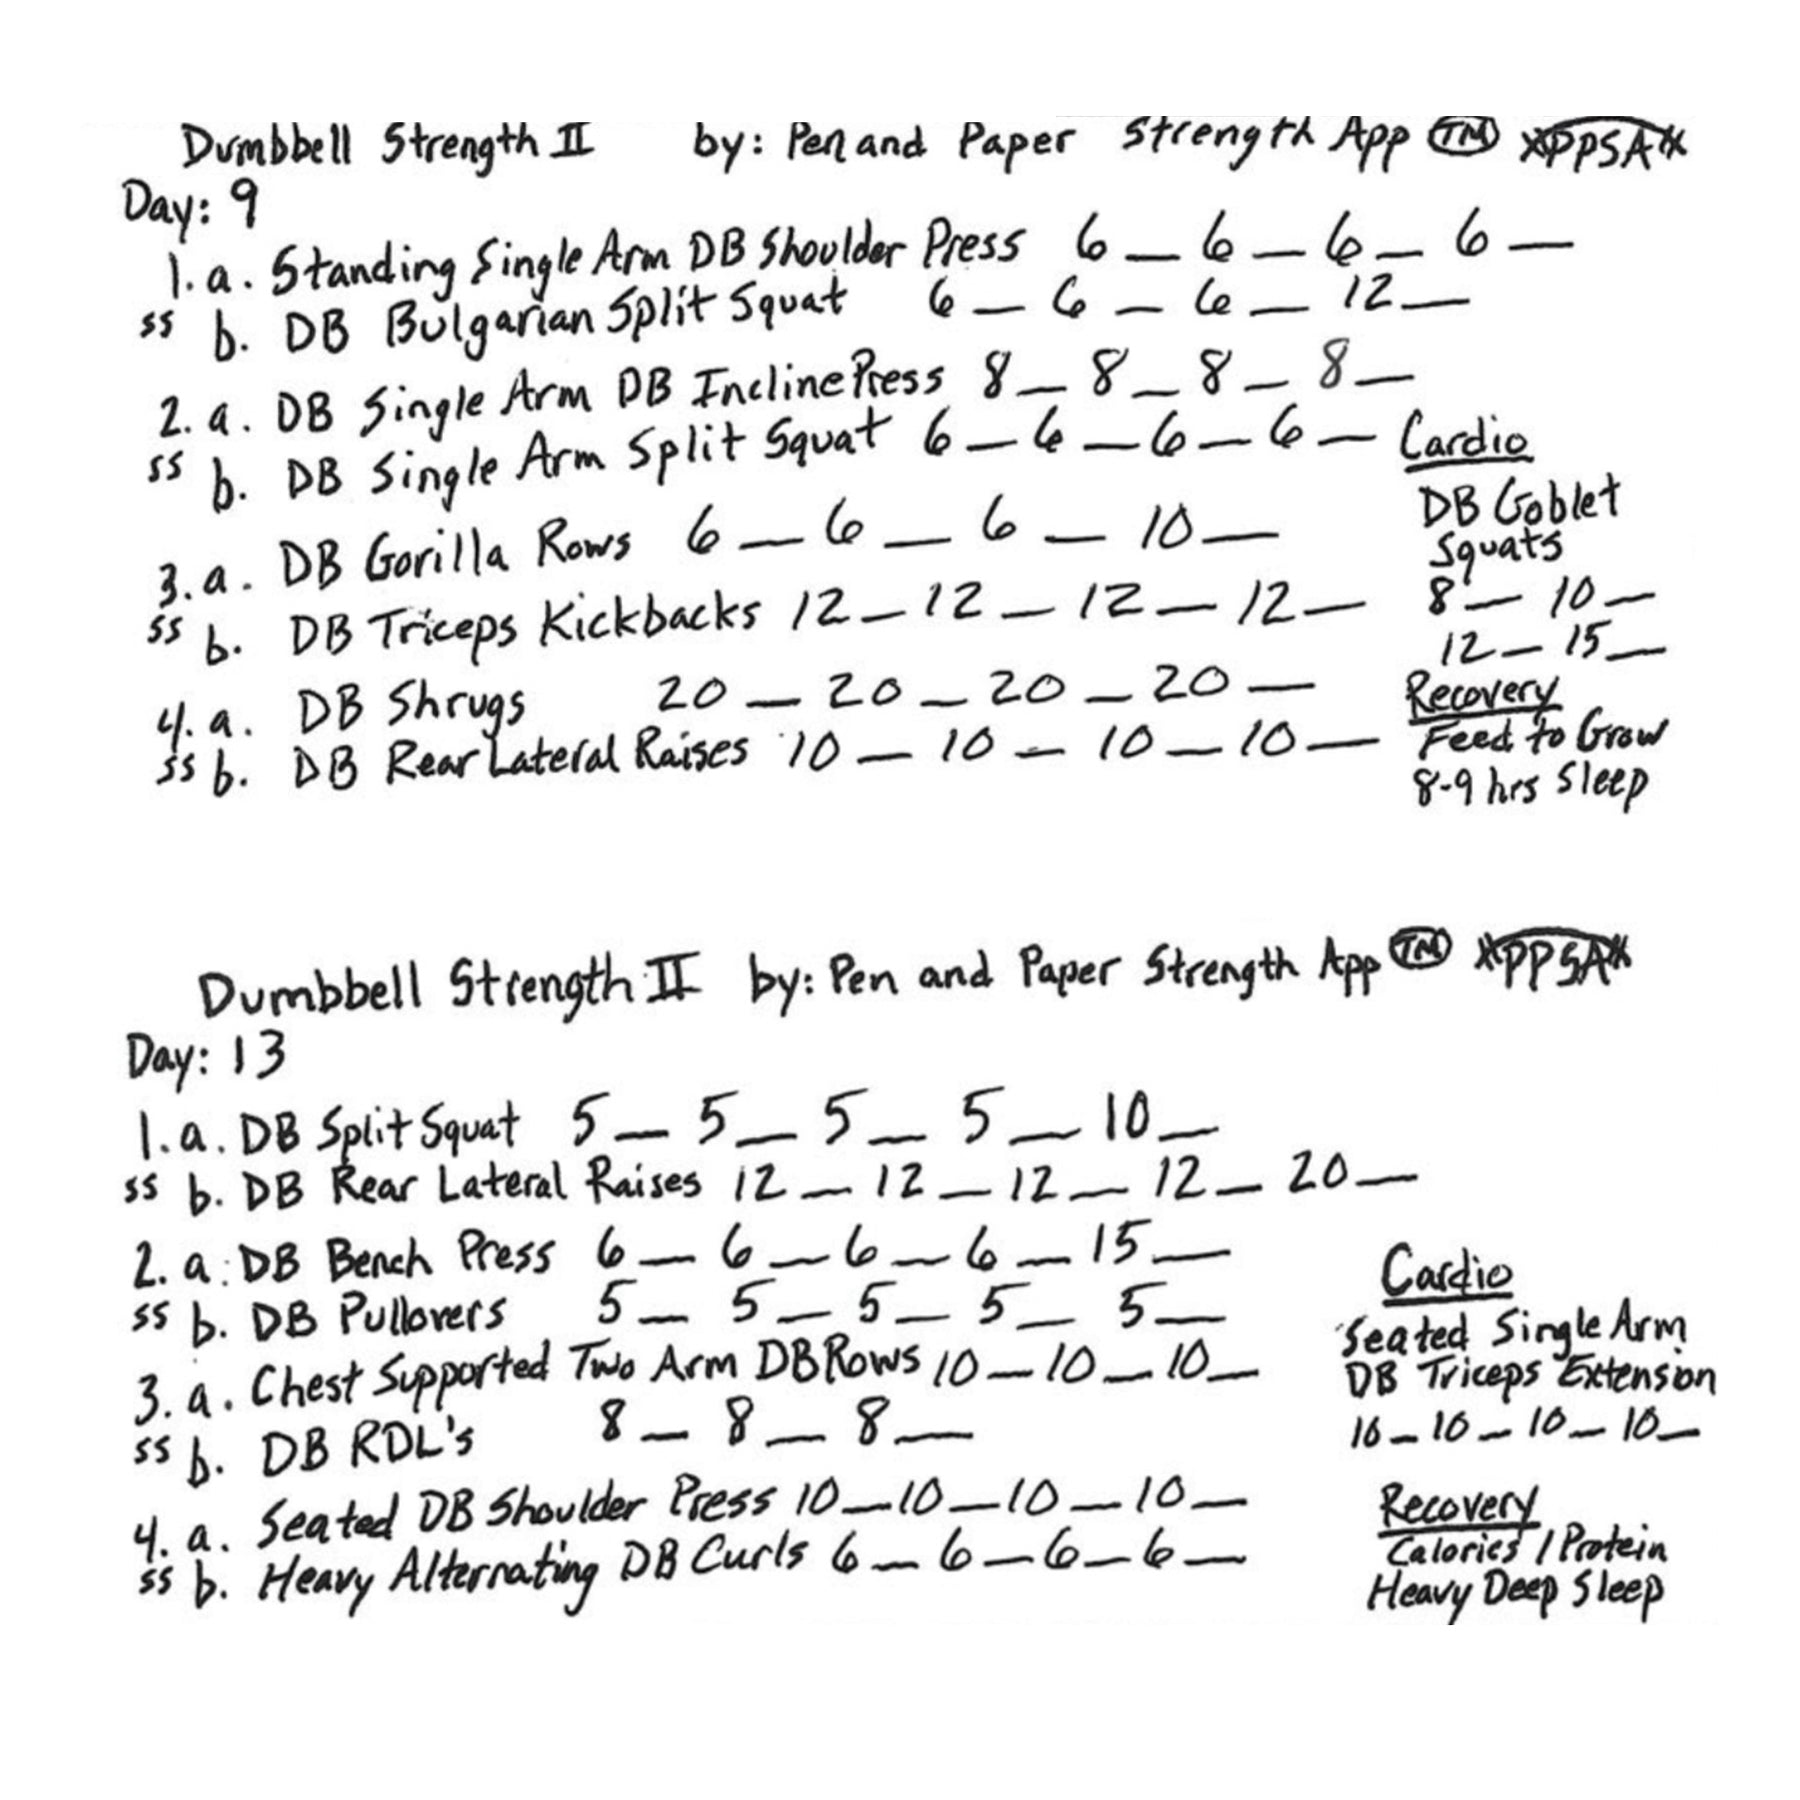 Dumbbell Strength II by: Pen and Paper Strength App TM *PPSA*
Day: 9
1. a. Standing Single Arm DB Shoulder Press 6 _ 6 _ 6 _ 6 _
ss b. DB Bulgarian Split Squat 6 _ 6 _ 6 _ 12 _
2. a. DB Single Arm DB Incline Press 8 _ 8 _ 8 _ 8 _
ss b. DB Single Arm Split Squat 6 _ 6 _ 6 _ 6 _
3. a. DB Gorilla Rows 6 _ 6 _ 6 _ 10 _
ss b. DB Triceps Kickbacks 12 _ 12 _ 12 _ 12 _
4. a. DB Shrugs 20 _ 20 _ 20 _ 20 _
ss b. DB Rear Lateral Raises 10 _ 10 _ 10 _ 10 _
Cardio
DB Goblet
Squats
8 _ 10 _
12 _ 15 _
Recovery
Feed to Grow
8-9 hrs Sleep
Dumbbell Strength II by: Pen and Paper Strength App TM *PPSA*
Day: 13
1. a. DB Split Squat 5 _ 5 _ 5 _ 5 _ 10 _
ss b. DB Rear Lateral Raises 12 _ 12 _ 12 _ 12 _ 20 _
2. a. DB Bench Press 6 _ 6 _ 6 _ 6 _ 15 _
ss b. DB Pullovers 5 _ 5 _ 5 _ 5 _ 5 _
3. a. Chest Supported Two Arm DB Rows 10 _ 10 _ 10 _
ss b. DB RDL's 8 _ 8 _ 8 _
4. a. Seated DB Shoulder Press 10 _ 10 _ 10 _ 10 _
ss b. Heavy Alternating DB Curls 6 _ 6 _ 6 _ 6 _
Cardio
Seated Single Arm
DB Triceps Extension
10 _ 10 _ 10 _ 10 _
Recovery
Calories / Protein
Heavy Deep Sleep